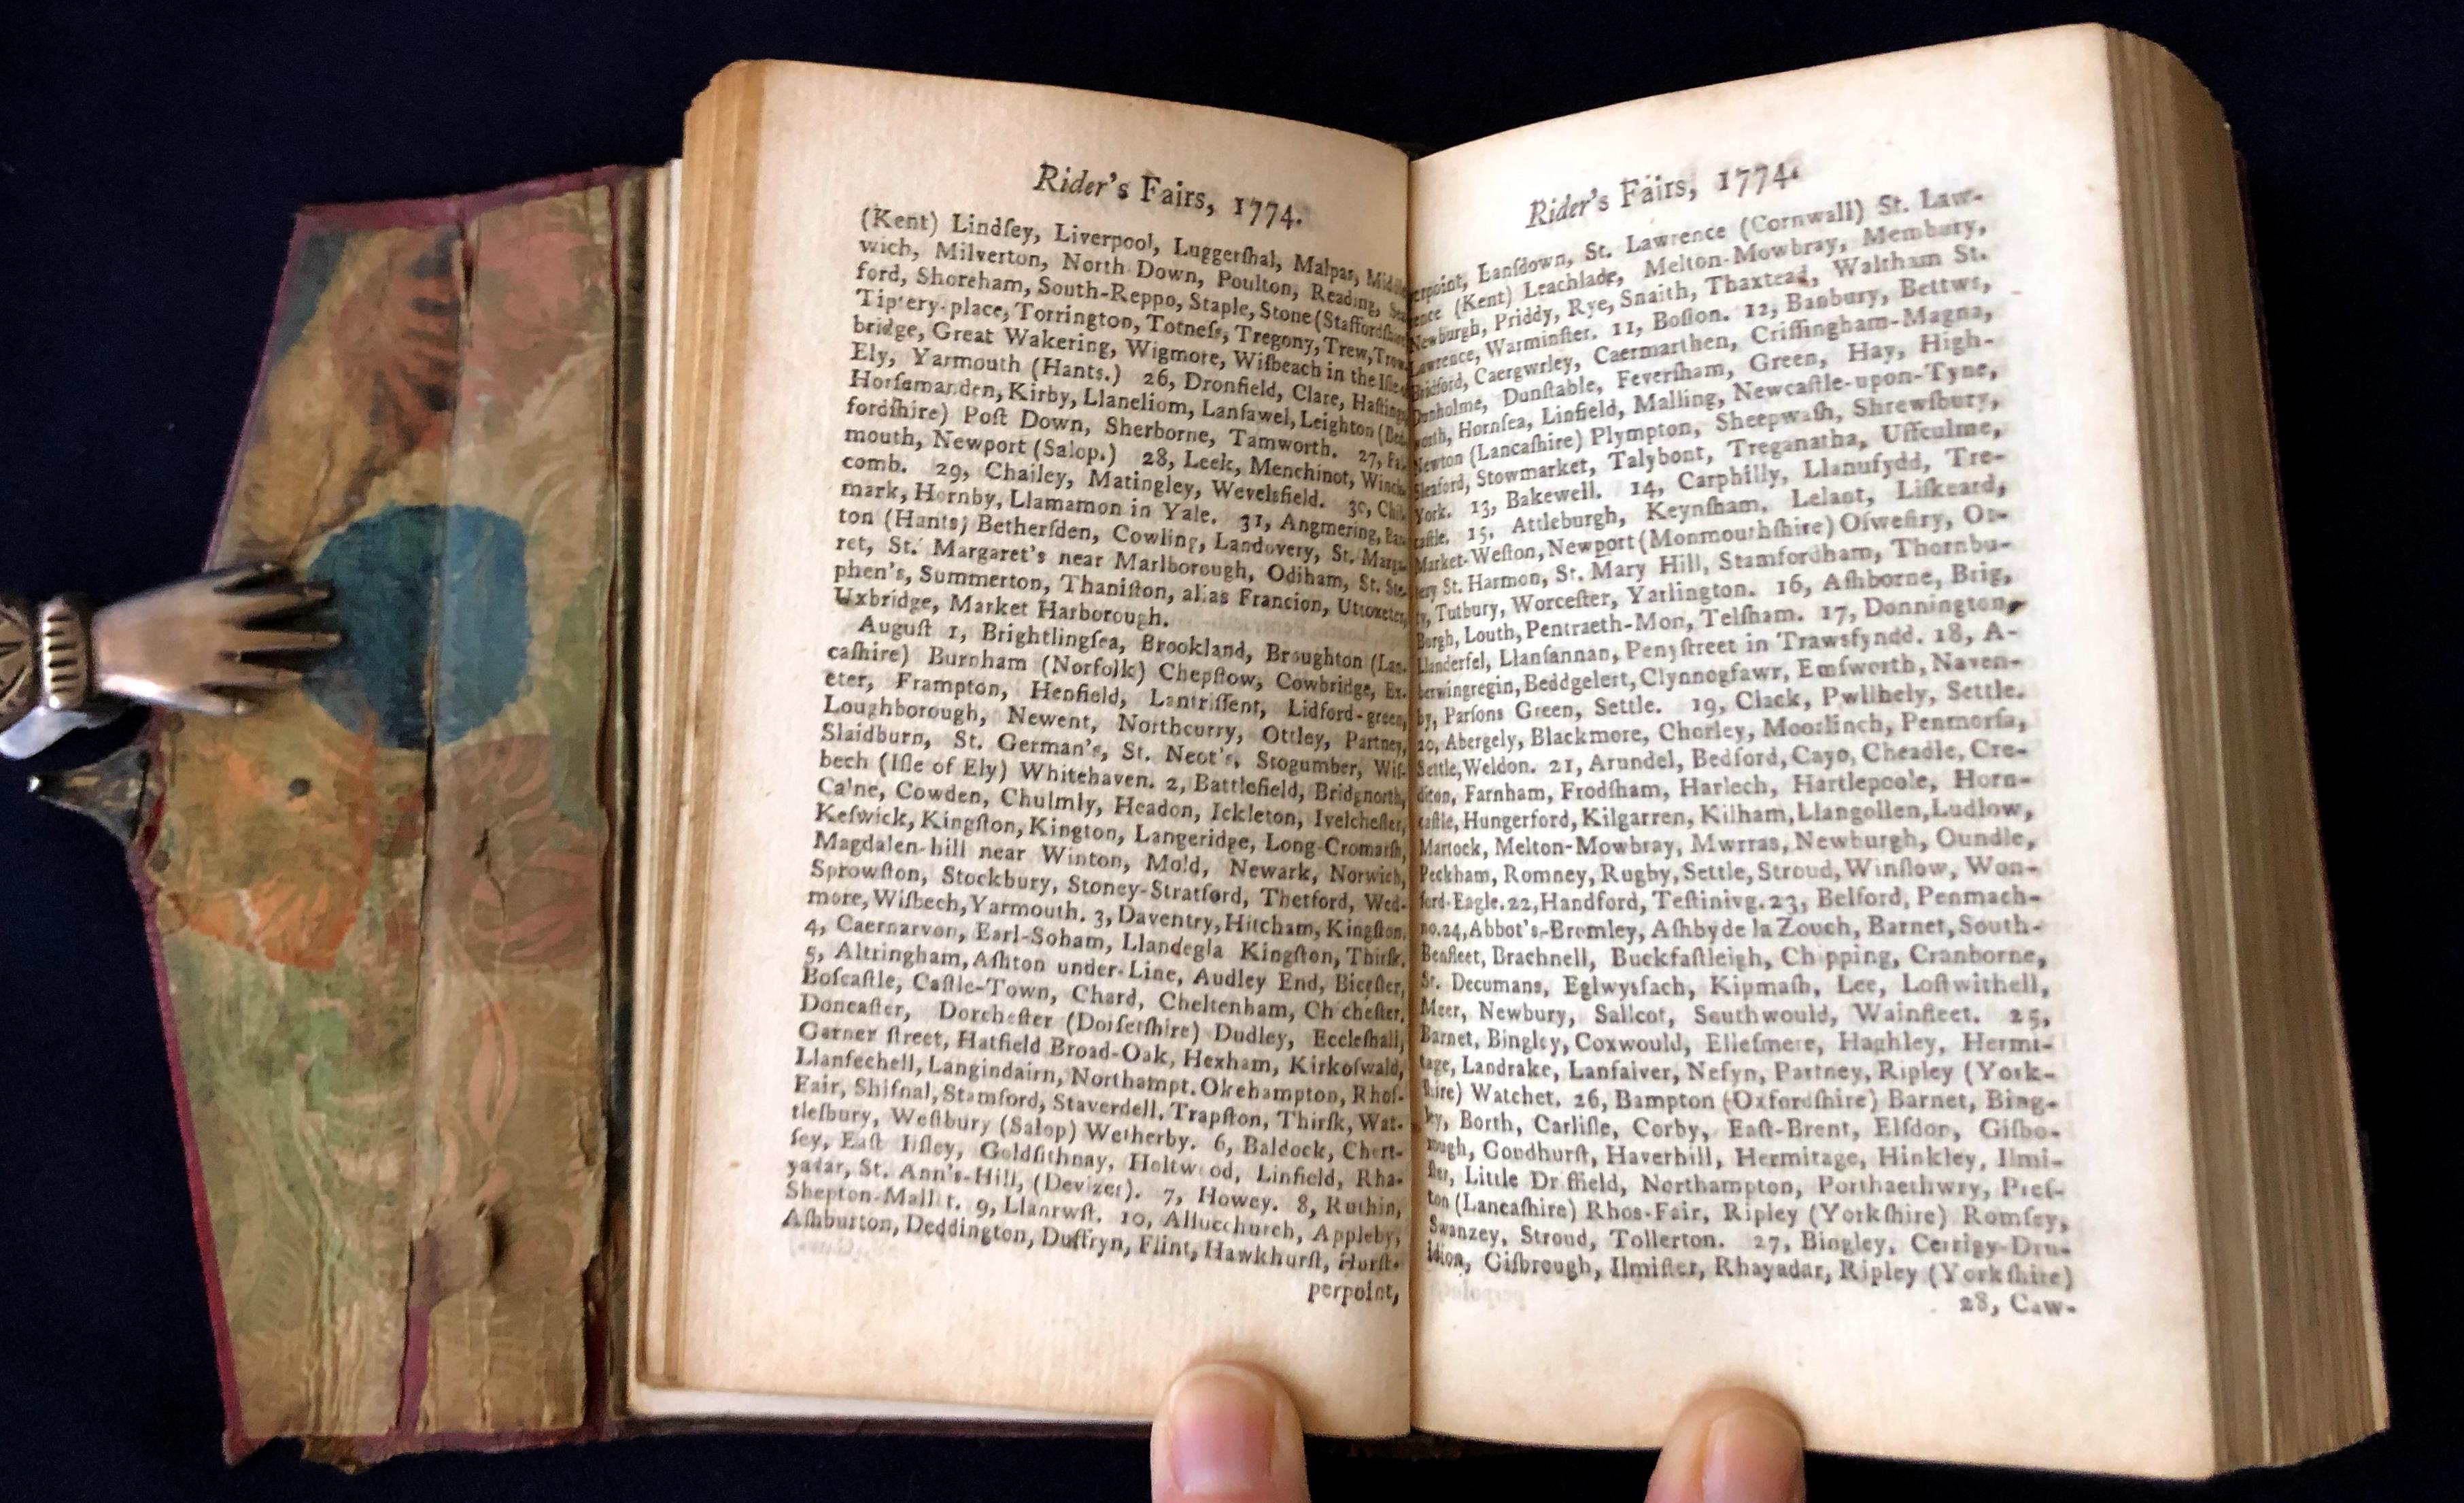 Rider's Fairs, 1774.
(Kent) Lindſey, Liverpool, Luggerſhal, Malpas,
wich, Milverton, North Down, Poulton, Reading,
ford, Shoreham, South-Reppo, Staple, Stone (Staffordſhire
Tiptery-place, Torrington, Totneſs, Tregony, Trew, Trow-
bridge, Great Wakering, Wigmore, Wiſbeach in the Iſle
Ely, Yarmouth (Hants.) 26, Dronfield, Clare, Haſtings
Horſemanden, Kirby, Llaneliom, Lanſawel, Leighton (Bed-
fordſhire) Poſt Down, Sherborne, Tamworth. 27,
mouth, Newport (Salop.) 28, Leek, Menchinot, Winch-
comb. 29, Chailey, Matingley, Wevelsfield. 30,
mark, Hornby, Llamamon in Yale. 31, Angmering,
ton (Hants) Betherſden, Cowling, Landovery, St. Marga-
ret, St. Margaret's near Marlborough, Odiham, St. Ste-
phen's, Summerton, Thaniſton, alias Francion, Uttoxeter,
Uxbridge, Market Harborough.
Auguſt 1, Brightlingſea, Brookland, Broughton (Lan-
caſhire) Burnham (Norfolk) Chepſtow, Cowbridge, Ex-
eter, Frampton, Henfield, Lantriſſent, Lidford-green,
Loughborough, Newent, Northcurry, Ottley, Partney,
Slaidburn, St. German's, St. Neot's, Stogumber, Wiſ-
bech (Iſle of Ely) Whitehaven. 2, Battlefield, Bridgnorth,
Calne, Cowden, Chulmly, Headon, Ickleton, Ivelcheſter,
Keſwick, Kingſton, Kington, Langeridge, Long-Cromarſh,
Magdalen-hill near Winton, Mold, Newark, Norwich,
Sprowſton, Stockbury, Stoney-Stratford, Thetford, Wed-
more, Wiſbech, Yarmouth. 3, Daventry, Hitcham, Kingſton.
4, Caernarvon, Earl-Soham, Llandegla Kingſton, Thirſk.
5, Altringham, Aſhton under-Line, Audley End, Biceſter,
Boſcaſtle, Caſtle-Town, Chard, Cheltenham, Chicheſter,
Doncaſter, Dorcheſter (Dorſetſhire) Dudley, Eccleſhall,
Garner ſtreet, Hatfield Broad-Oak, Hexham, Kirkoſwald,
Llanfechell, Langindairn, Northampt. Okehampton, Rhoſ-
Fair, Shifnal, Stamford, Staverdell, Trapſton, Thirſk, Wat-
tleſbury, Weſtbury (Salop) Wetherby. 6, Baldock, Chert-
ſey, Eaſt Ilſley, Goldſithnay, Holtwood, Linfield, Rha-
yadar, St. Ann's-Hill, (Devizes). 7, Howey. 8, Ruthin,
Shepton-Mallet. 9, Llanrwſt. 10, Allucchurch, Appleby,
Aſhburton, Deddington, Duffryn, Flint, Hawkhurſt, Hurſt-
perpoint,
Rider's Fairs, 1774.
erpoint, Lanſdown, St. Lawrence (Cornwall) St. Law-
ence (Kent) Leachlade, Melton-Mowbray, Membury,
Newburgh, Priddy, Rye, Snaith, Thaxtead, Waltham St.
Lawrence, Warminſter. 11, Boſton. 12, Banbury, Bettws,
Bridford, Caergwrley, Caermarthen, Criſſingham-Magna,
Dunholme, Dunſtable, Feverſham, Green, Hay, High-
worth, Hornſea, Linfield, Malling, Newcaſtle-upon-Tyne,
Newton (Lancaſhire) Plympton, Sheepwaſh, Shrewſbury,
Sleaford, Stowmarket, Talybont, Treganatha, Uffculme,
York. 13, Bakewell. 14, Carphilly, Llanufydd, Tre-
caſtle. 15, Attleburgh, Keynſham, Lelant, Liſkeard,
Market-Weſton, Newport (Monmouthſhire) Oſweſtry, Ot-
tery St. Harmon, St. Mary Hill, Stamfordham, Thornbu-
ry, Tutbury, Worceſter, Yarlington. 16, Aſhborne, Brig,
Borgh, Louth, Pentraeth-Mon, Telſham. 17, Donnington,
Llanderfel, Llanſannan, Penyſtreet in Trawsfyndd. 18, A-
berwingregin, Beddgelert, Clynnogfawr, Emſworth, Naven-
by, Parſons Green, Settle. 19, Clack, Pwllhely, Settle.
20, Abergely, Blackmore, Chorley, Moorlinch, Penmorfa,
Settle, Weldon. 21, Arundel, Bedford, Cayo, Cheadle, Cre-
diton, Farnham, Frodſham, Harlech, Hartlepoole, Horn-
caſtle, Hungerford, Kilgarren, Kilham, Llangollen, Ludlow,
Martock, Melton-Mowbray, Mwrras, Newburgh, Oundle,
Peckham, Romney, Rugby, Settle, Stroud, Winſlow, Won-
ford-Eagle. 22, Handford, Teſtinivg. 23, Belford, Penmach-
no. 24, Abbot's-Bromley, Aſhby de la Zouch, Barnet, South-
Benfleet, Brachnell, Buckfaſtleigh, Chipping, Cranborne,
St. Decumans, Eglwysfach, Kipmaſh, Lee, Loſtwithell,
Meer, Newbury, Sallcot, Southwould, Wainfleet. 25,
Barnet, Bingley, Coxwould, Elleſmere, Haghley, Hermi-
tage, Landrake, Lanfaiver, Nefyn, Partney, Ripley (York-
ſhire) Watchet. 26, Bampton (Oxfordſhire) Barnet, Bing-
ley, Borth, Carliſle, Corby, Eaſt-Brent, Elſdon, Giſbo-
rough, Goudhurſt, Haverhill, Hermitage, Hinkley, Ilmi-
ſter, Little Driffield, Northampton, Porthaethwry, Preſ-
ton (Lancaſhire) Rhos-Fair, Ripley (Yorkſhire) Romſey,
Swanzey, Stroud, Tollerton. 27, Bingley, Cerrigy-Dru-
idion, Giſbrough, Ilmiſter, Rhayadar, Ripley (Yorkſhire)
28, Caw-